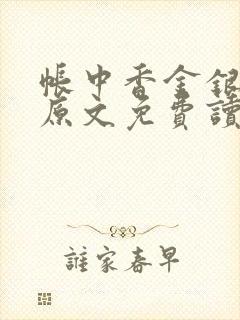 帳中香金銀
原文免費讀
誰家春早